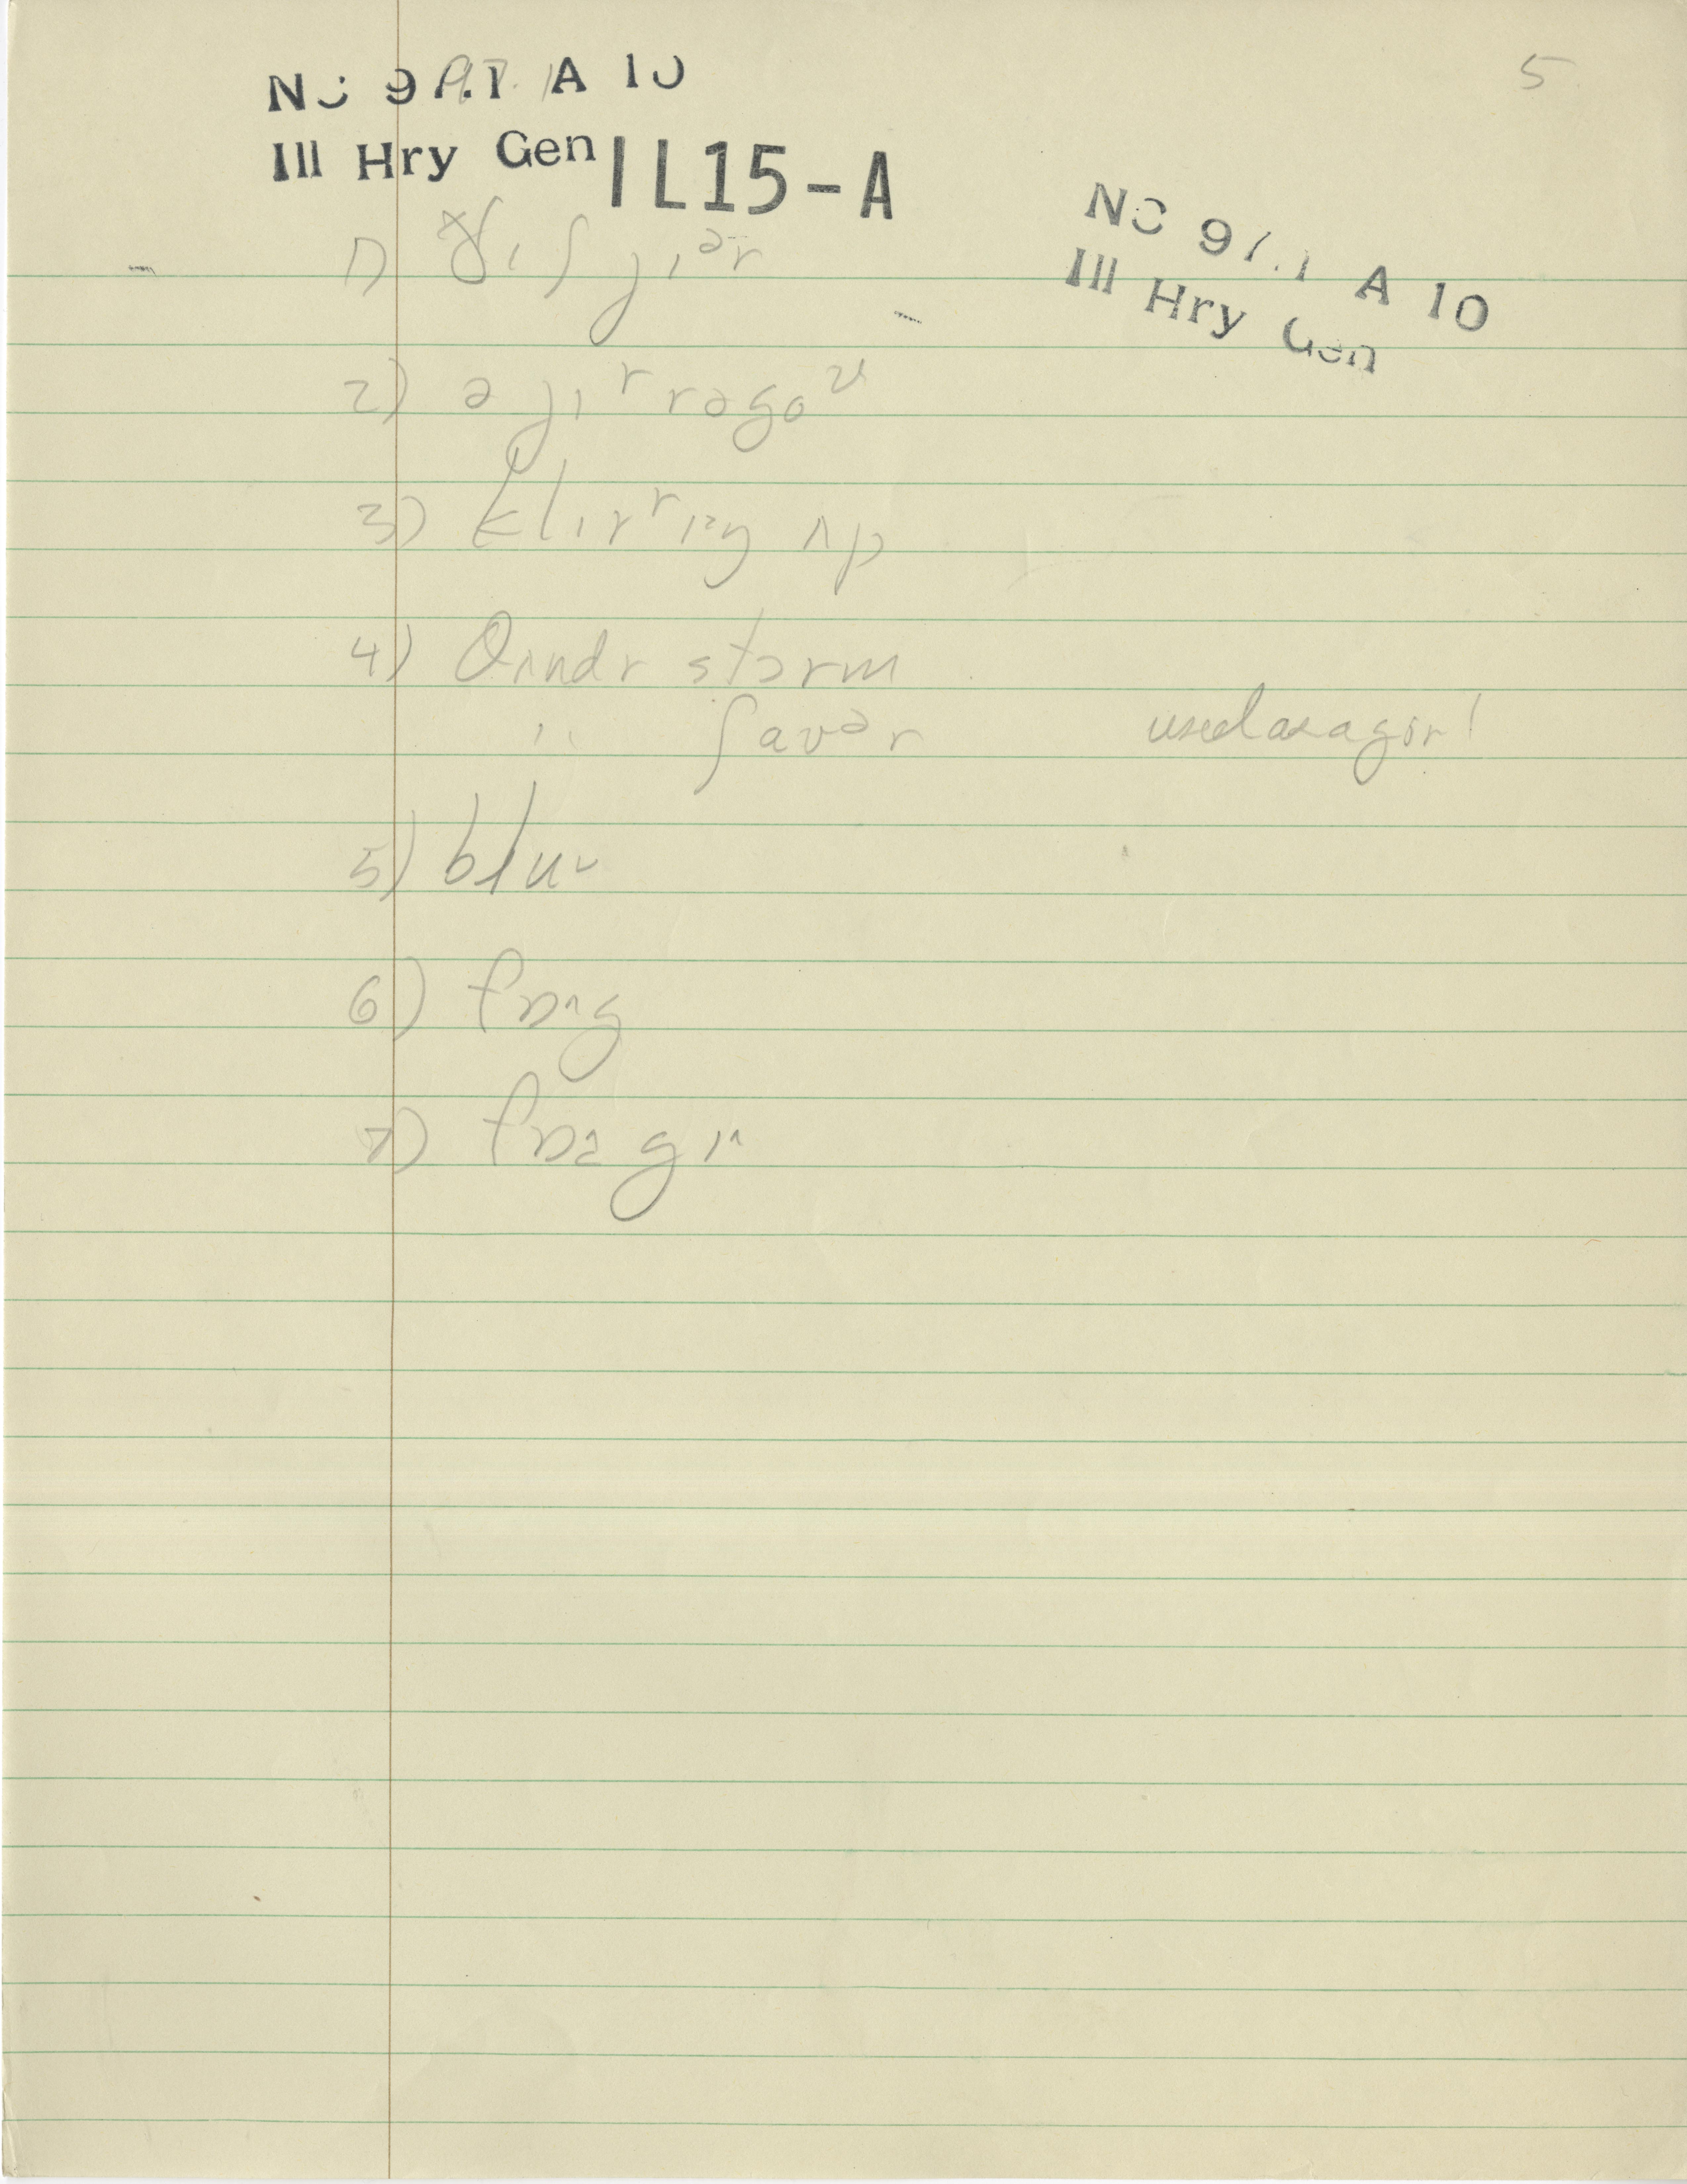 5
NC 97.1 A 10
Ill Hry Gen IL15-A
NC 97.1 A 10
Ill Hry Gen
1) ðɪʃ jɪᵊr
2) ə jɪʳ rəgoᵘ
3) klɪrʳɪŋ ʌp
4) θʌndr stɔrm
" ʃavᵊr
5) bluᵘ
6) fɒᵊg
7) fɒᵊgɪ